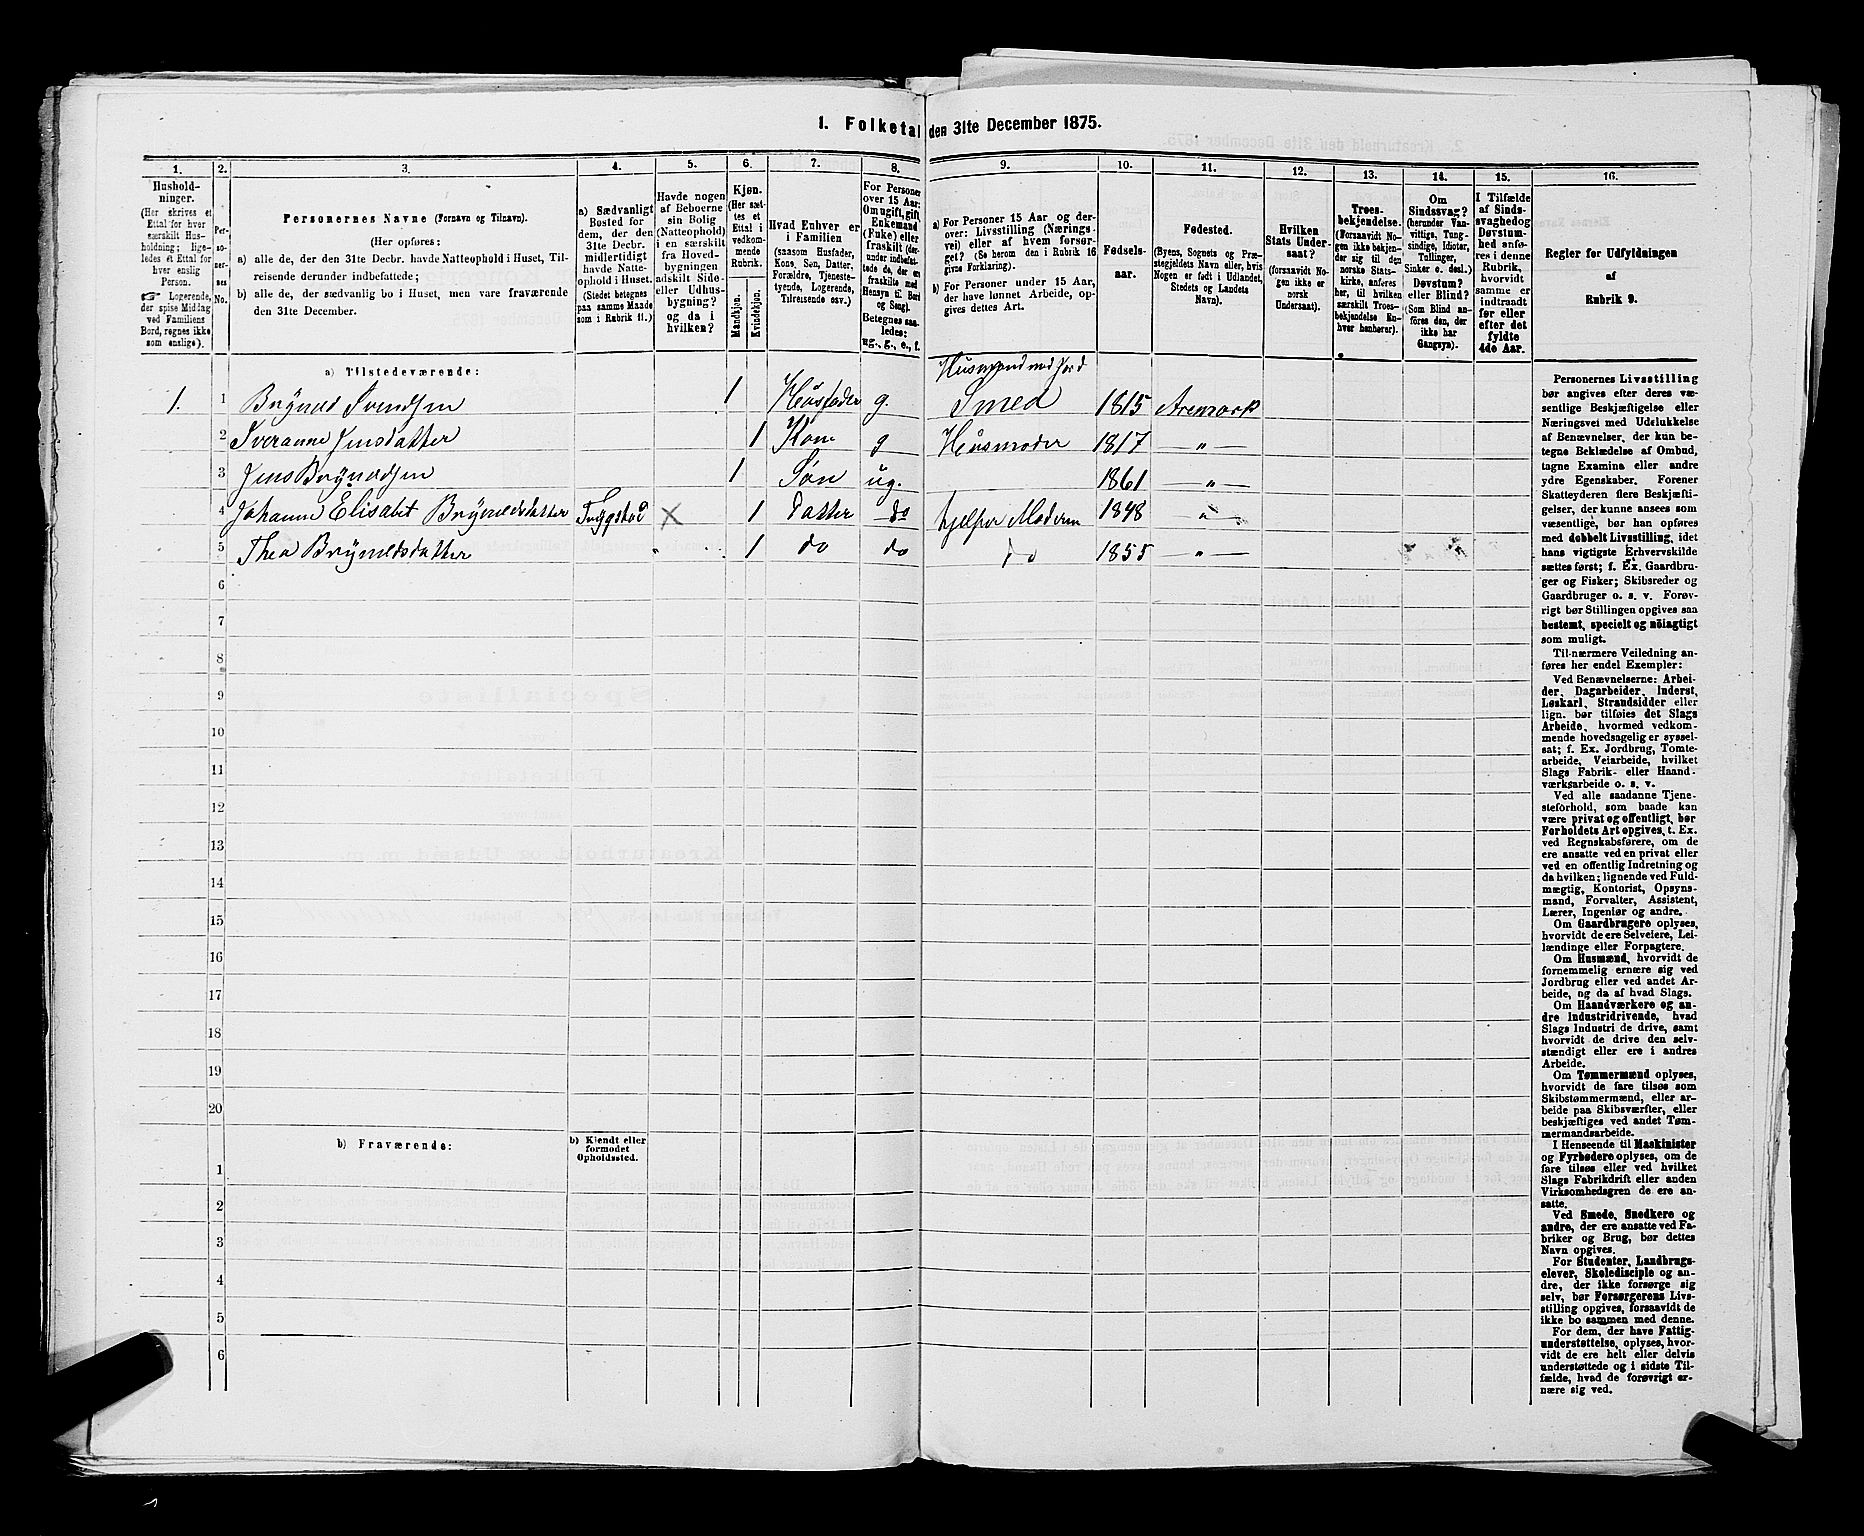 1. Folketal den 31te December 1875.
1.
2.
3.
4.
5.
6.
7.
8.
9.
10.
11.
12.
13.
14.
15.
16.
Hushold-
ninger.
(Her skrives et
Ettal for hver
særskilt Hus-
holdning; lige-
ledes et Ettal for
hver enslig
Person.
☞ Logerende,
der spise Middag
ved Familiens
Bord, regnes ikke
som enslige).
Per-
so-
ner-
nes
No.
Personernes Navne (Fornavn og Tilnavn).
(Her opføres:
a) alle de, der den 31te Decbr. havde Natteophold i Huset, Til-
reisende derunder indbefattede;
b) alle de, der sædvanlig bo i Huset, men vare fraværende
den 31te December.
a) Sædvanligt
Bosted for
dem, der den
31te Decbr.
midlertidigt
havde Natte-
ophold i Huset.
(Stedet betegnes
paa samme Maade
som i Rubrik 11.)
Havde nogen
af Beboerne
sin Bolig
(Natteophold)
i en særskilt
fra Hoved-
bygningen
adskilt Side-
eller Udhus-
bygning?
og da i
hvilken?
Kjøn.
(Her sæt-
tes et
Ettal i
vedkom-
mende
Rubrik.
Mandkjøn.
Kvindekjøn.
Hvad Enhver er
i Familien
(saasom Husfader,
Kone, Søn, Datter,
Forældre, Tjeneste-
tyende, Logerende,
Tilreisende osv.)
For Personer
over 15 Aar:
Om ugift, gift
Enkemand
(Enke) eller
fraskilt (der-
under indbefat-
tede de, der en
fraskilte med
Hensyn til Bord
og Seng).
Betegnes saa-
ledes:
ug., g., e., f.
a) For Personer 15 Aar og der-
over: Livsstilling (Nærings-
vei) eller af hvem forsør-
get? (Se herom den i Rubrik 16
givne Forklaring).
b) For Personer under 15 Aar,
der have lønnet Arbeide, op-
gives dettes Art.
Fødsels-
aar.
Fødested.
(Byens, Sognets og Præ-
stegjeldets Navn eller, hvis
Nogen er født i Udlandet,
Stedets og Landets
Navn).
Hvilken
Stats Under-
saat?
(forsaavidt No-
gen ikke er
norsk
Undersaat).
Troes-
bekjendelse.
(Forsaavidt No-
gen ikke bekjen-
der sig til den
norske Stats-
kirke, anføres
her, til hvilken
særskilt Troes-
bekjendelse En-
hver henhører).
Om
Sindssvag?
(herunder Van-
vittige, Tung-
sindige, Idioter,
Tullinger,
Sinker o. desl.)
Døvstum?
eller Blind?
(Som Blind an-
føres den, der
ikke har
Gangsyn).
I Tilfælde
af Sinds-
svaghed og
Døvstum-
hed anfø-
res i denne
Rubrik,
hvorvidt
samme er
indtraadt
før eller
efter det
fyldte
4de Aar.
Regler for Udfyldningen
af
Rubrik 9.
a) Tilstedeværende:
Husmand med Jord
1. 1 Brÿned Svendsen 1 Husfader g. Smed 1815 Aremark
2 Sveranne Jensdatter 1 Kone g Husmoder 1817 — „ —
3 Jens Brÿnedsen 1 Søn ug. 1861 — „ —
4 Johanne Elisabet Brÿnedsdatter Tryggstad X 1 Datter do hjelper Moderen 1848 „ —
5 Thea Brÿnedsdatter „ 1 do do do 1855 — „ —
6
7
8
9
10
11
12
13
14
15
16
17
18
19
20
b) Fraværende:
b) Kjendt eller
formodet
Opholdssted.
1
2
3
4
5
6
Personernes Livsstilling
bør angives efter deres væ-
sentlige Beskjæftigelse eller
Næringsvei med Udelukkelse
af Benævnelser, der kun be-
tegne Beklædelse af Ombud,
tagne Examina eller andre
ydre Egenskaber. Forener
Skatteyderen flere Beskjæfti-
gelser, der kunne ansees som
væsentlige, bør han opføres
med dobbelt Livsstilling, idet
hans vigtigste Erhvervskilde
sættes først; f. Ex. Gaardbru-
ger og Fisker; Skibsreder og
Gaardbruger o. s. v. Forøv-
rigt bør Stillingen opgives saa
bestemt, specielt og nöiagtigt
som muligt.
Til nærmere Veiledning an-
føres her endel Exempler:
Ved Benævnelserne: Arbei-
der, Dagarbeider, Inderst,
Løskarl, Strandsidder eller
lign. bør tilføies det Slags
Arbeide, hvormed vedkom-
mende hovedsagelig er syssel-
sat; f. Ex. Jordbrug, Tomte-
arbeide, Veiarbeide, hvilket
Slags Fabrik- eller Haand-
værksarbeide o. s. v.
Ved alle saadanne Tjene-
steforhold, som baade kan
være privat og offentligt, bør
Forholdets Art opgives, t. Ex.
ved Regnskabsførere, om de
ere ansatte ved en privat eller
ved en offentlig Indretning og
da hvilken; lignende ved Fuld-
mægtig, Kontorist, Opsyns-
mand, Forvalter, Assistent,
Lærer, Ingeniør og andre.
Om Gaardbrugere oplyses,
hvorvidt de ere Selveiere, Lei-
lændinge eller Forpagtere.
Om Husmænd, hvorvidt de
fornemmelig ernære sig ved
Jordbrug eller ved andet Ar-
beide, og da af hvad Slags.
Om Haandværkere og an-
dre Industridrivende, hvad
Slags Industri de drive, samt
hvorvidt de drive den selv-
stændigt eller ere i andres
Arbeide.
Om Tømmermænd oplyses,
hvorvidt de fare tilsøs som
Skibstømmermænd, eller ar-
beide paa Skibsværfter, eller
beskjæftiges ved andet Tøm-
mermandsarbeide.
I Henseende til Maskinister
og Fyrbødere oplyses, om de
fare tilsøs eller ved hvilket
Slags Fabrikdrift eller anden
Virksomhedsgren de ere an-
satte.
Ved Smede, Snedkere og
andre, der ere ansatte ved Fa-
briker og Brug, bør dettes
Navn opgives.
For Studenter, Landbrugs-
elever, Skoledisciple og an-
dre, der ikke forsørge sig
selv, bør Forsørgerens Livs-
stilling opgives, forsaavidt de
ikke bo sammen med denne.
For dem, der have Fattig-
understøttelse, oplyses, hvor-
vidt de ere helt eller delvis
understøttede og i sidste Til-
fælde, hvad de forøvrigt er-
nære sig ved.